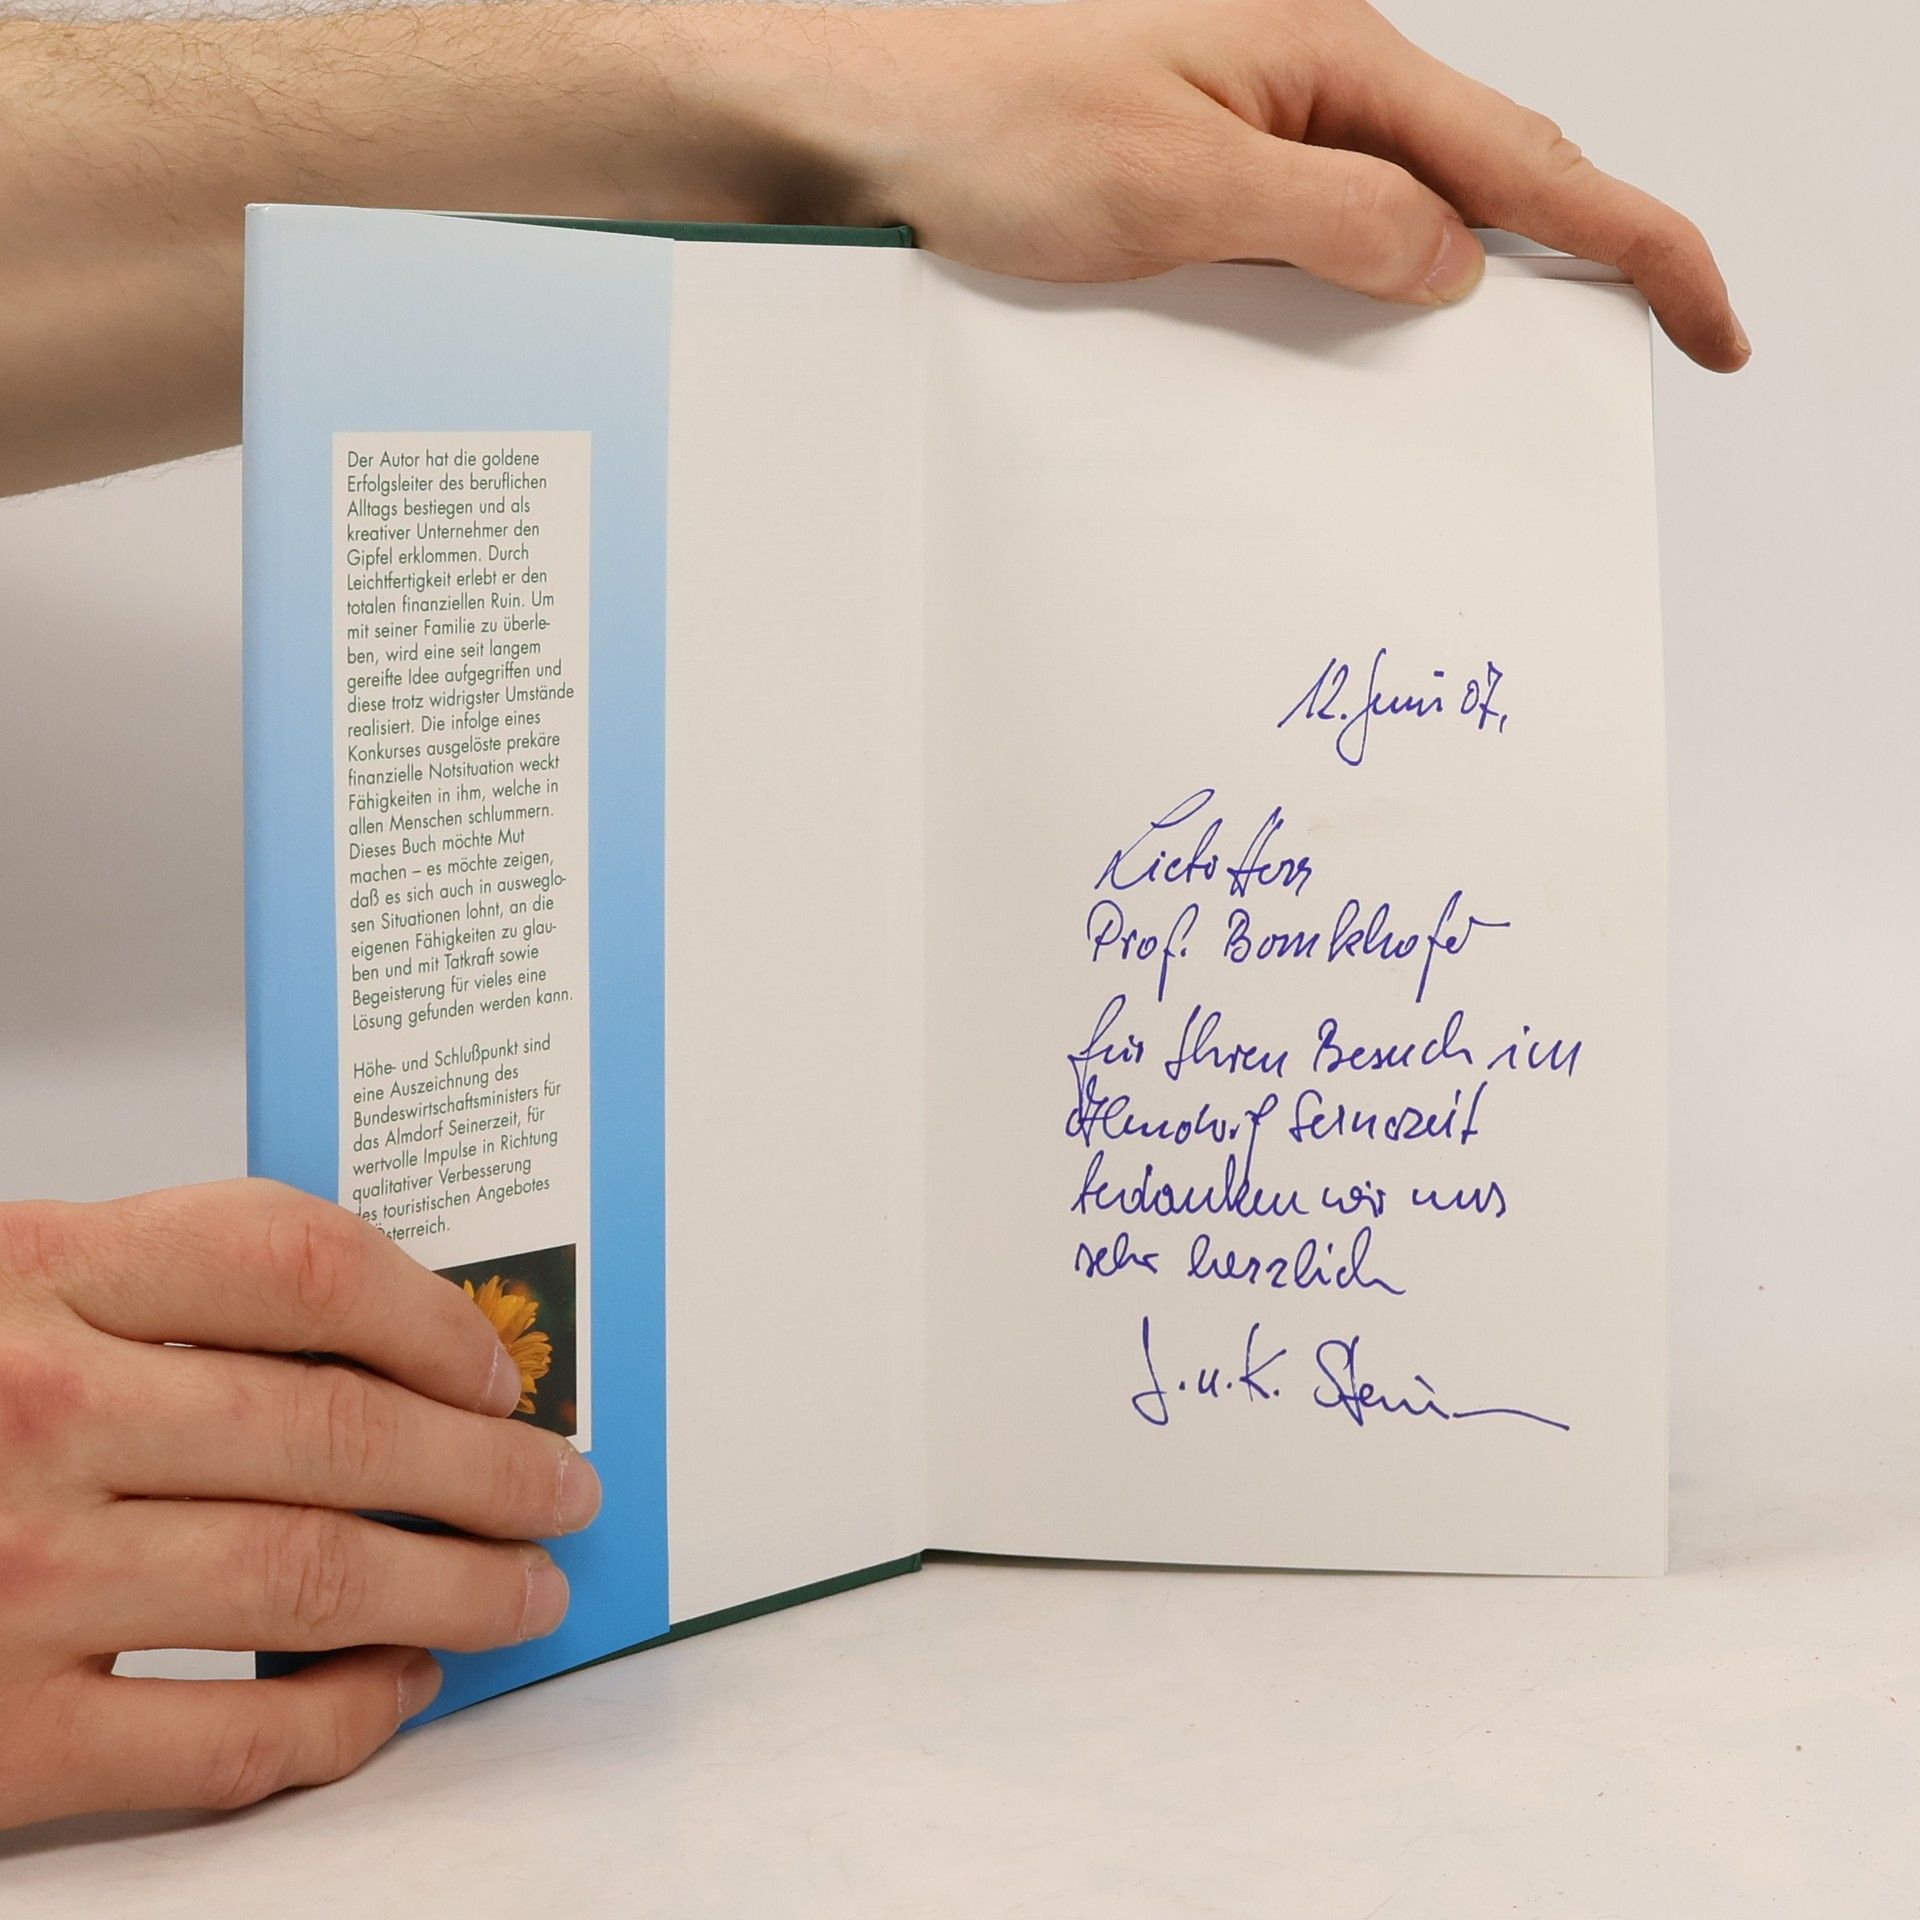 Der Autor hat die goldene
Erfolgsleiter des beruflichen
Alltags bestiegen und als
kreativer Unternehmer den
Gipfel erklommen. Durch
Leichtfertigkeit erlebt er den
totalen finanziellen Ruin. Um
mit seiner Familie zu überle-
ben, wird eine seit langem
gereifte Idee aufgegriffen und
diese trotz widrigster Umstände
realisiert. Die infolge eines
Konkurses ausgelöste prekäre
finanzielle Notsituation weckt
Fähigkeiten in ihm, welche in
allen Menschen schlummern.
Dieses Buch möchte Mut
machen – es möchte zeigen,
daß es sich auch in ausweglo-
sen Situationen lohnt, an die
eigenen Fähigkeiten zu glau-
ben und mit Tatkraft sowie
Begeisterung für vieles eine
Lösung gefunden werden kann.
Höhe- und Schlußpunkt sind
eine Auszeichnung des
Bundeswirtschaftsministers für
das Almdorf Seinerzeit, für
wertvolle Impulse in Richtung
qualitativer Verbesserung
des touristischen Angebotes
Österreich.
12. Juni 07,
Lieber Herr
Prof.
für Ihren Besuch im
Almdorf Seinerzeit
bedanken wir uns
sehr herzlich
J. u. K.